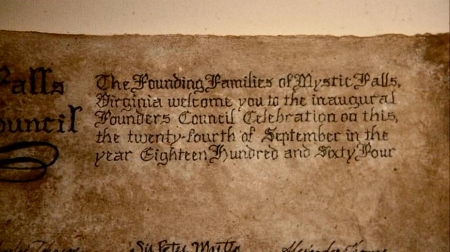 Falls
Council
The Founding Families of Mystic Falls,
Virginia welcome you to the inaugural
Founders Council Celebration on this,
the twenty-fourth of September in the
year Eighteen Hundred and Sixty Four